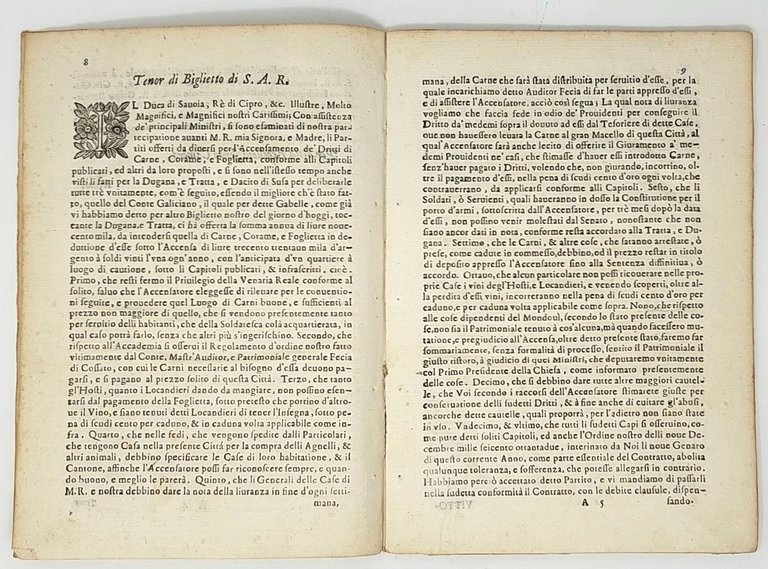 8
Tenor di Biglietto di S. A. R.
IL Duca di Sauoia, Rè di Cipro, &c. Illustre, Molto
Magnifici, e Magnifici nostri Carissimi; Con assistenza
de' principali Ministri, si sono esaminati di nostra par-
tecipatione auanti M. R. mia Signora, e Madre, li Par-
titi offerti da diuersi per l'Accensamento de' Dritti di
Carne, Corame, e Foglietta, conforme alli Capitoli
publicati, ed altri da loro proposti, e si sono nell'istesso tempo anche
visti li fatti per la Dugana, e Tratta, e Dacito di Susa per deliberarle
tutte trè vnitamente, com'è seguito, essendo il migliore ch'è stato fat-
to, quello del Conte Galiciano, il quale per dette Gabelle, come già
vi habbiamo detto per altro Biglietto nostro del giorno d'hoggi, toc-
cante la Dugana, e Tratta, ci hà offerta la somma annua di liure noue-
cento mila, da intendersi quella di Carne, Corame, e Foglietta in de-
duttione d'esse sotto l'Accensa di liure trecento trentaun mila d'ar-
gento à soldi vinti l'vna ogn'anno, con l'anticipata d'vn quartiere à
luogo di cautione, sotto li Capitoli publicati, & infrascritti, cioè.
Primo, che resti fermo il Priuilegio della Venaria Reale conforme al
solito, saluo che l'Accensatore eleggesse di rileuar per le conuentio-
ni seguite, e prouedere quel Luogo di Carni buone, e sufficienti al
prezzo non maggiore di quello, che si vendono presentemente tanto
per seruitio delli habitanti, che della Soldatesca colà acquartierata, in
qual caso potrà farlo, senza che altri più s'ingerischino. Secondo, che
rispetto all'Accademia si osserui il Regolamento d'ordine nostro fatto
vltimamente dal Conte, Mastr'Auditor, e Patrimoniale generale Fecia
di Cossato, con cui le Carni necessarie al bisogno d'essa deuono pa-
garsi, e si pagano al prezzo solito di questa Città. Terzo, che tanto
gl'Hosti, quanto li Locandieri dando da mangiare, non possino esen-
tarsi dal pagamento della Foglietta, sotto pretesto che portino d'altro-
ue il Vino, e siano tenuti detti Locandieri di tener l'Insegna, sotto pe-
na di scudi cento per caduno, & in caduna volta applicabile come in-
fra. Quarto, che nelle fedi, che vengono spedite dalli Particolari,
che tengono Casa nella presente Città per la compra delli Agnelli, &
altri animali, debbino specificare le Case di loro habitatione, & il
Cantone, affinche l'Accensatore possi far riconoscere sempre, e quan-
do buono, e meglio le parerà. Quinto, che li Generali delle Case di
M. R. e nostra debbino dare la nota della liuranza in fine d'ogni setti-
mana,
9
mana, della Carne che sarà stata distribuita per seruitio d'esse, per la
quale incarichiamo detto Auditor Fecia di far le parti appresso d'essi,
e di assistere l'Accensatore, acciò così segua; La qual nota di liuranza
vogliamo che faccia fede in odio de' Prouidenti per conseguire il
Dritto da' medemi sopra il douuto ad essi dal Tesoriere di dette Case,
oue non hauessero leuata la Carne al gran Macello di questa Città, al
qual'Accensatore sarà anche lecito di offerire il Giuramento a' me-
demi Prouidenti ne' casi, che stimasse d'hauer essi introdotto Carne,
senz'hauer pagato i Dritti, volendo che, non giurando, incorrino, ol-
tre il pagamento d'essi, nella pena di scudi cento d'oro ogni volta, che
contrauerranno, da applicarsi conforme alli Capitoli. Sesto, che li
Soldati, & Seruienti, quali haueranno in dosso la Constitutione per il
porto d'armi, sottoscritta dall'Accensatore, per trè mesi dopò la data
d'essi, non possino venir molestati dal Senato, nonostante che non
siano ancor dati in nota, conforme resta accordato alla Tratta, e Du-
gana. Settimo, che le Carni, & altre cose, che saranno arrestate, ò
prese, come cadute in commesso, debbino, od il prezzo restar in titolo
di deposito appresso l'Accensatore fino alla Sentenza diffinitiua, ò
accordo. Ottauo, che alcun particolare non possi ricouerare nelle pro-
prie Case i vini degl'Hosti, e Locandieri, e venendo scoperti, oltre al-
la perdita d'essi vini, incorreranno nella pena di scudi cento d'oro per
caduno, e per caduna volta applicabile come sopra. Nono, che rispetto
alle cose dipendenti del Mondouì, secondo lo stato presente delle co-
se, non sia il Patrimoniale tenuto à cos'alcuna, mà quando facessero mu-
tatione, e pregiudicio all'Accensa, oltre detto presente stato, saremo far
sommariamente, senza formalità di processo, sentito il Patrimoniale il
giusto ristoro, à giudicio di quei Ministri, che deputaremo vnitamente
col Primo Presidente della Chiesa, come informato presentemente
delle cose. Decimo, che si debbino dare tutte altre maggiori cautel-
le, che Voi secondo i raccorsi dell'Accensatore stimarete giuste per
consecutione delli sudetti Dritti, & à fine anche di euitare gl'abusi,
ancorche dette cautelle, quali proporrà, per l'adietro non siano state
in vso. Vndecimo, & vltimo, che tutti li sudetti Capi si osseruino, co-
me pure detti soliti Capitoli, ed anche l'Ordine nostro delli noue De-
cembre mille seicento ottantadue, interinato da Noi li noue Genaro
di questo corrente Anno, come parte essentiale del Contratto, abolita
qualunque toleranza, e sofferenza, che potesse allegarsi in contrario.
Habbiamo però accettato detto Partito, e vi mandiamo di passarli
nella sudetta conformità il Contratto, con le debite clausule, dispen-
A 5 sando-